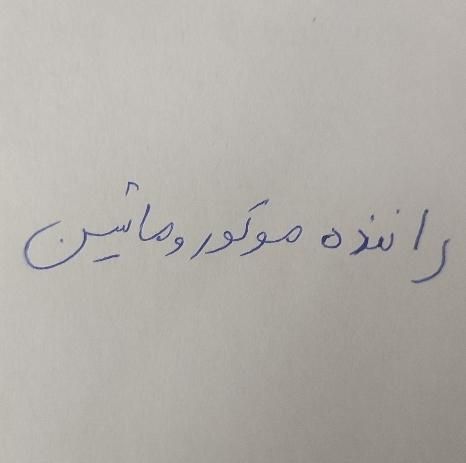 راننده موتور و ماشین